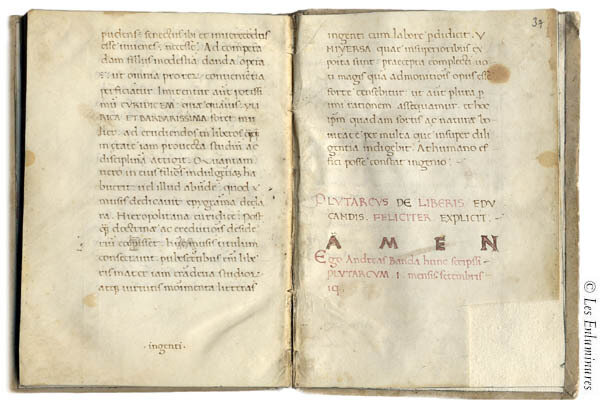 pudens: senectusibi et inverecundos
esse iuvenes necesse. Ad compera
dam filiis modestia danda opera
ut omnia protter convenientia
perficiatur. Imitentur aut potissi
EURIDICEM: quae quauis: YLI
RICA ET BARBARISSIMA foret mu
lier. ad erudiendos tn liberos
instate iam provecta studiu ac
disciplina attigit. Quantam
vero in suos filios indulgentia ha
buerit. vel illud abunde. quod
musis dedicavit epigrama decla
ra. Hieropolitana euridice: Post
doctrinae ac eruditiois deside
musis titulum
consecravit. pubescentibus eni libe
ris mater iam grandeva studior
atque virtutis monimenta litteras
·ingenti·
37
ingenti cum labore pdidicit. V
NIVERSA quae insuperioribus ex
posita sunt: praecepta complecti vo
ti magis qua admonitiois opus esse
forte censebitur. ut aut plurima
imi rationem assequamur. et hoc
ipsum quadam sortis ac naturae bo
nitate permulta que insuper dili
gentia indigebit. At humano ef
fici posse constat ingenio:
PLUTARCVS DE LIBERIS EDU
CANDIS. FELICITER EXPLICIT.
AMEN
Ego Andreas Banda hunc scripsi
PLUTARCUM. 1. mensis settenbris
© Les Enluminures